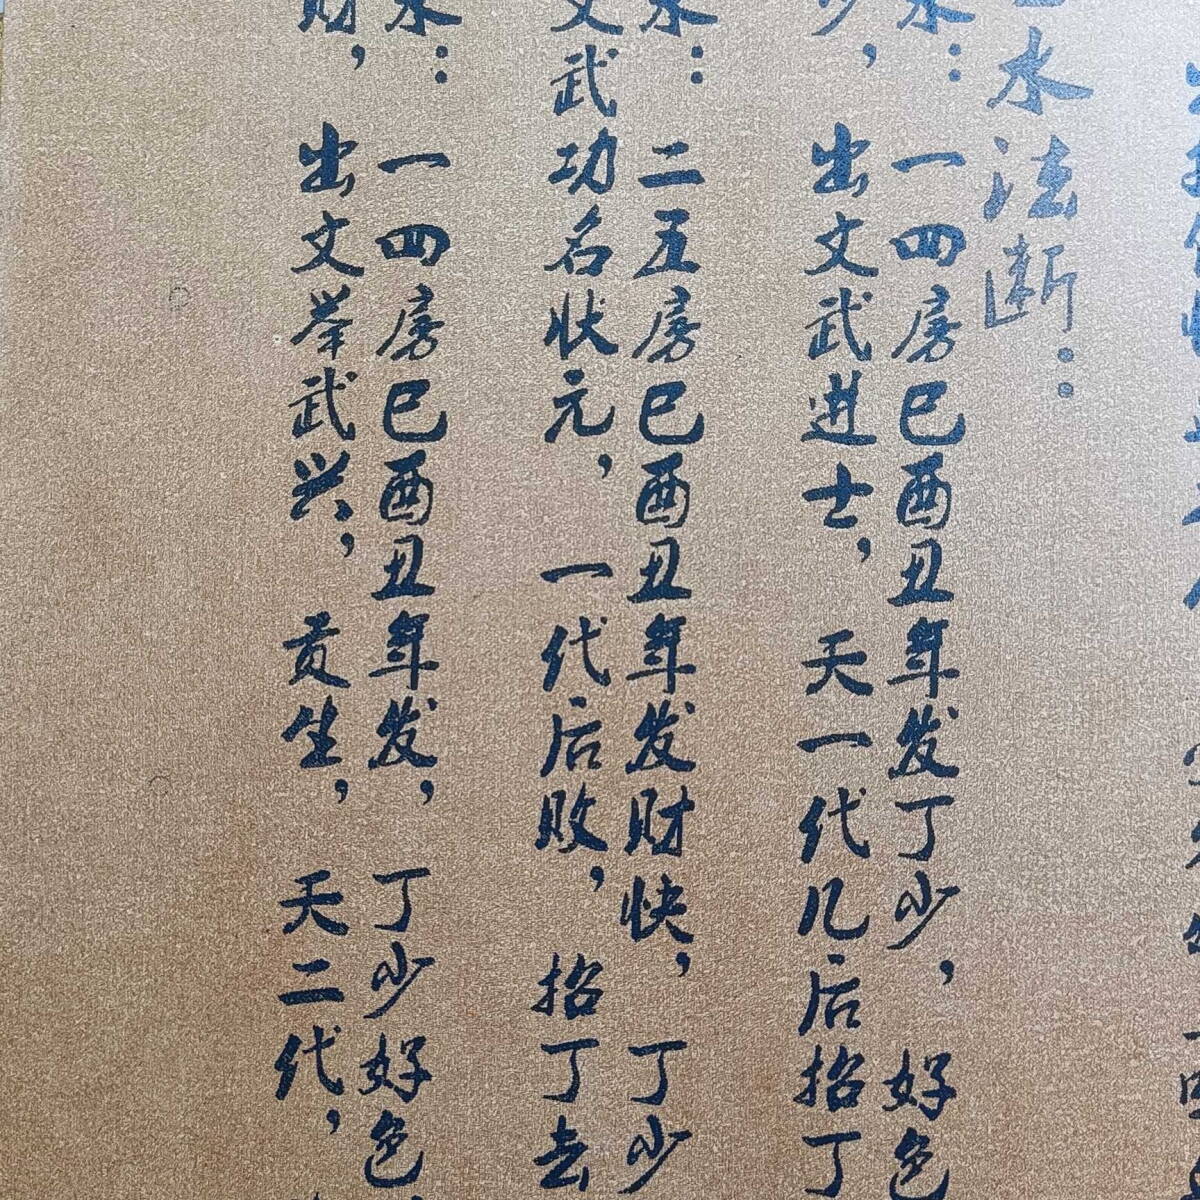 水法断：
水：一四房巳酉丑年发丁少，好色
少，出文武进士，天一代几后招丁
水：二五房巳酉丑年发财快，丁少
文武功名状元，一代后败，招丁去
水：一四房巳酉丑年发，丁少好色，
财，出文举武兴，贡生，天二代，